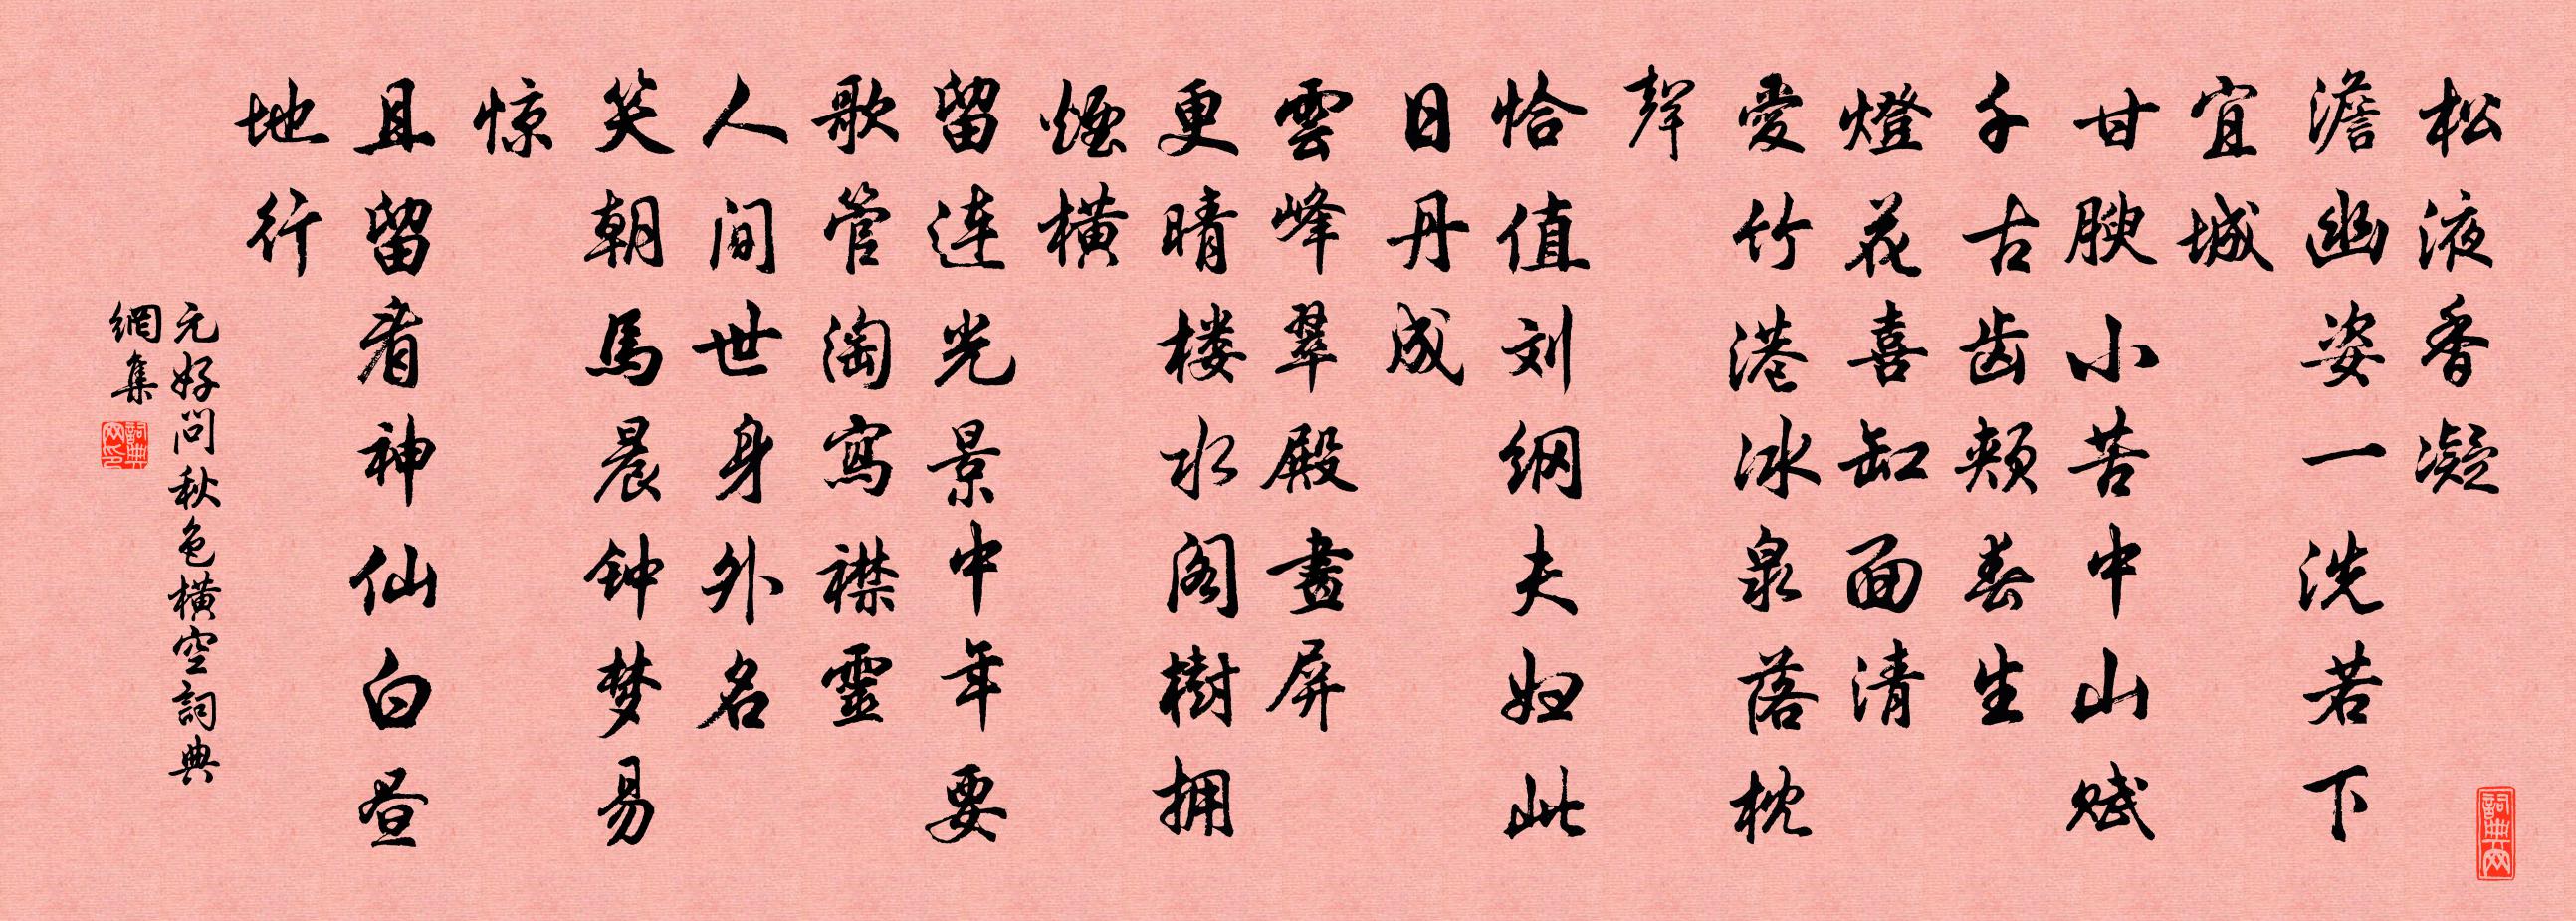 松液香凝
澹幽姿一洗若下
宜城
甘腴小苦中山赋
千古齿颊春生
燈花喜缸面清
愛竹港冰泉落枕
聲
恰值刘纲夫妇此
日丹成
雲峰翠殿畫屏
更晴楼水阁樹拥
煙橫
留连光景中年要
歌管淘寫襟靈
人间世身外名
笑朝馬晨钟梦易
惊
且留看神仙白昼
地行
元好问秋色橫空詞典
網集
詞典網